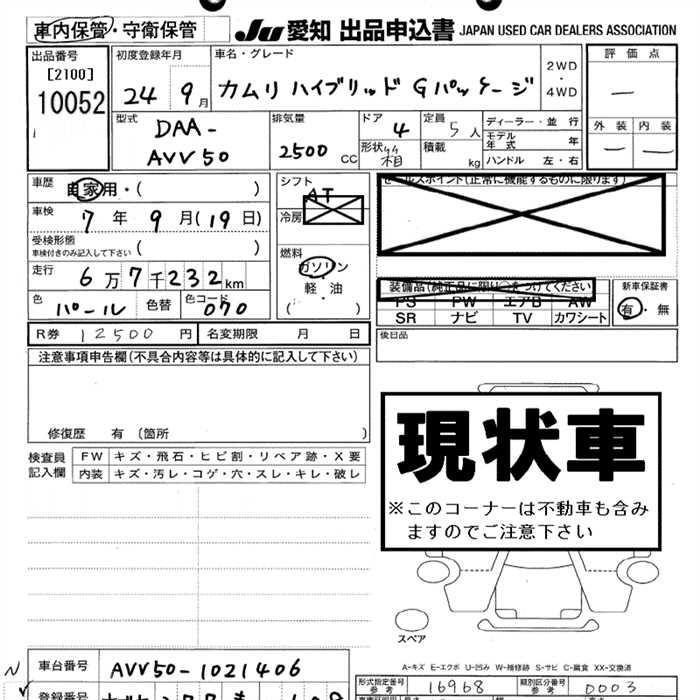 車内保管・守衛保管
JU 愛知 出品申込書 JAPAN USED CAR DEALERS ASSOCIATION
出品番号
[2100]
10052
初度登録年月
24 9月
車名・グレード
カムリ ハイブリッド Gパッケージ
2WD
・
4WD
評価点
—
外装 内装
— —
型式
DAA-
AVV50
排気量
2500 CC
ドア
4
形状 箱
定員
5人
積載 kg
ディーラー・並行
モデル年式 年
ハンドル 左・右
車歴
自家用・( )
車検
7年9月(19日)
受検形態
車検付きのみ記入して下さい ( )
走行
6万7千232km
色 パール 色替 色コード 070
シフト
AT
冷房
燃料
ガソリン
・
軽・油
( )
セールスポイント(正常に機能するものに限ります)
装備品(純正品に限り○をつけてください)
PS PW エアB AW
SR ナビ TV カワシート
新車保証書
有・無
R券 12500円 名変期限 月 日
後日品
注意事項申告欄(不具合内容等は具体的に記入して下さい)
修復歴 有 (箇所 )
検査員
記入欄
FW キズ・飛石・ヒビ割・リペア跡・X要
内装 キズ・汚レ・コゲ・穴・スレ・キレ・破レ
現状車
※このコーナーは不動車も含み
ますのでご注意下さい
スペア
A-キズ E-エクボ U-凹み W-補修跡 S-サビ C-腐食 XX-交換済
車台番号 AVV50-1021406
形式指定番号
参考
16968
類別区分番号
参考
0003